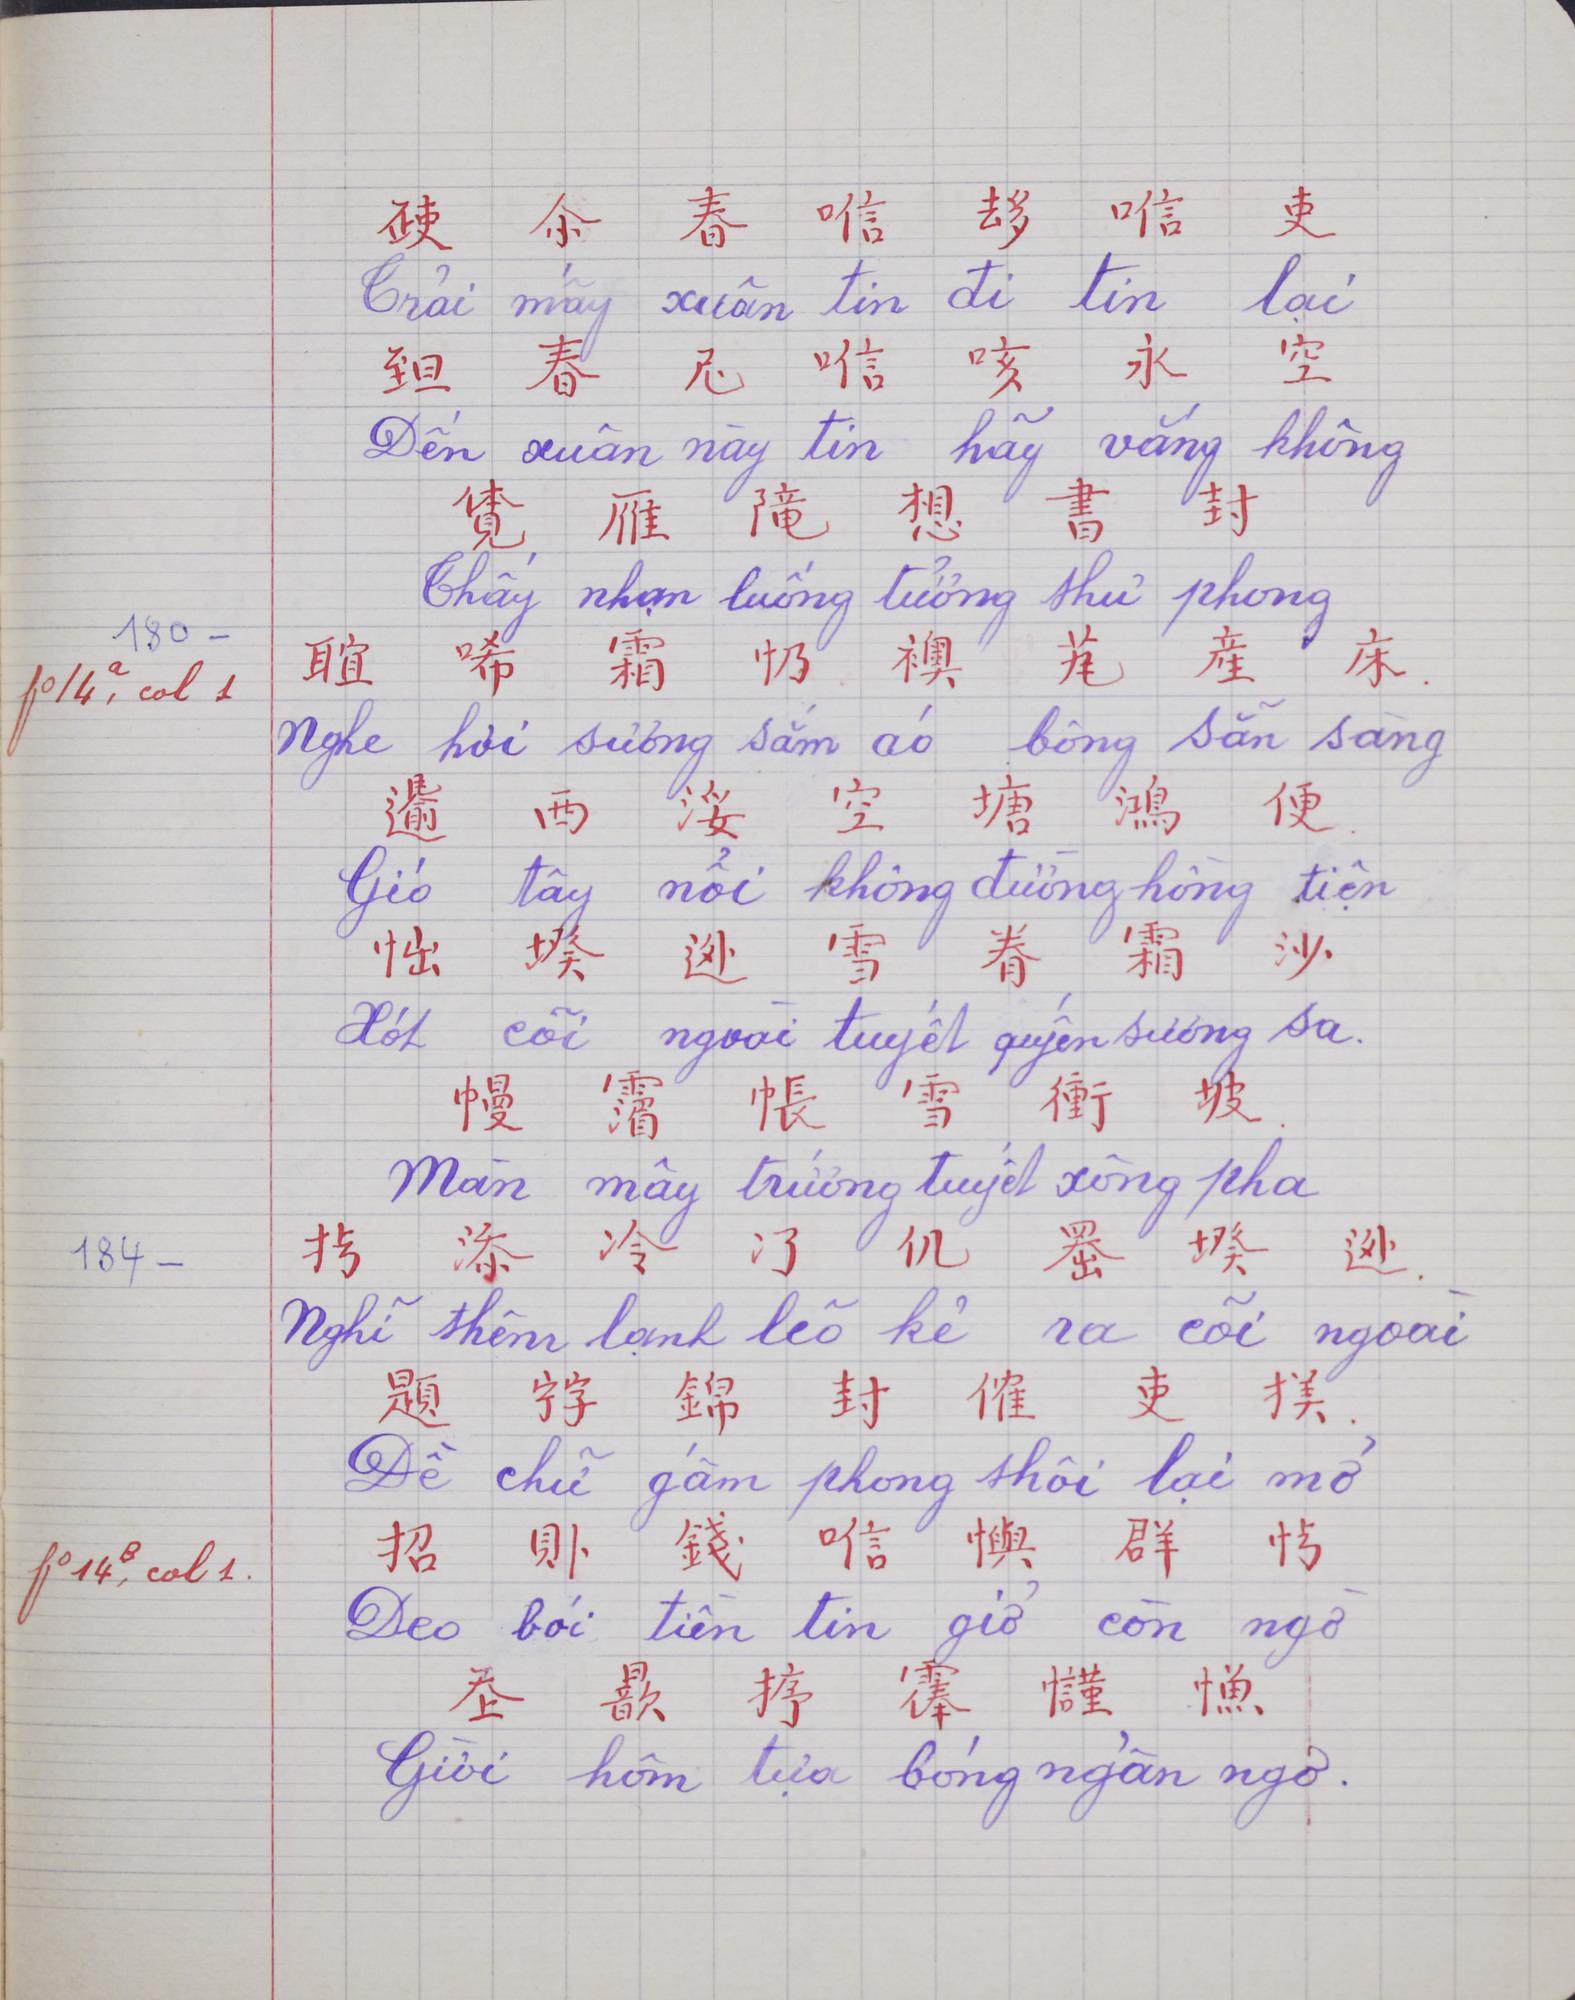 𣦰 尒 春 𠶣 𠫾 𠶣 吏
Trải mấy xuân tin đi tin lại
𦤾 春 尼 𠶣 咳 永 空
Đến xuân này tin hãy vắng không
𧡊 雁 𨻫 想 書 封
Thấy nhạn luống tưởng thư phong
180 –
fº 14ª, col 1
𦖑 唏 霜 𢪀 襖 芼 產 床.
Nghe hơi sương sắm áo bông sẵn sàng
𫗄 西 浽 空 塘 鴻 便.
Gió tây nổi không đường hồng tiện
怞 𡎝 外 雪 眷 霜 沙
Xót cõi ngoài tuyết quyến sương sa.
幔 𩄲 帳 雪 衝 坡.
Màn mây trướng tuyết xông pha
184 –
添 冷 仉 𡎝
Nghĩ thêm lạnh lẽo kẻ ra cõi ngoài
題 𡨸 錦 封 傕 吏 𢲫.
Đề chữ gấm phong thôi lại mở
fº 14ᴮ, col 1.
招 則 錢 𠶣 懊 群
Deo bói tiền tin giở còn ngờ
𡗶 歆 𢭸 𩃳 慬 𢠐
Giời hôm tựa bóng ngẩn ngơ.